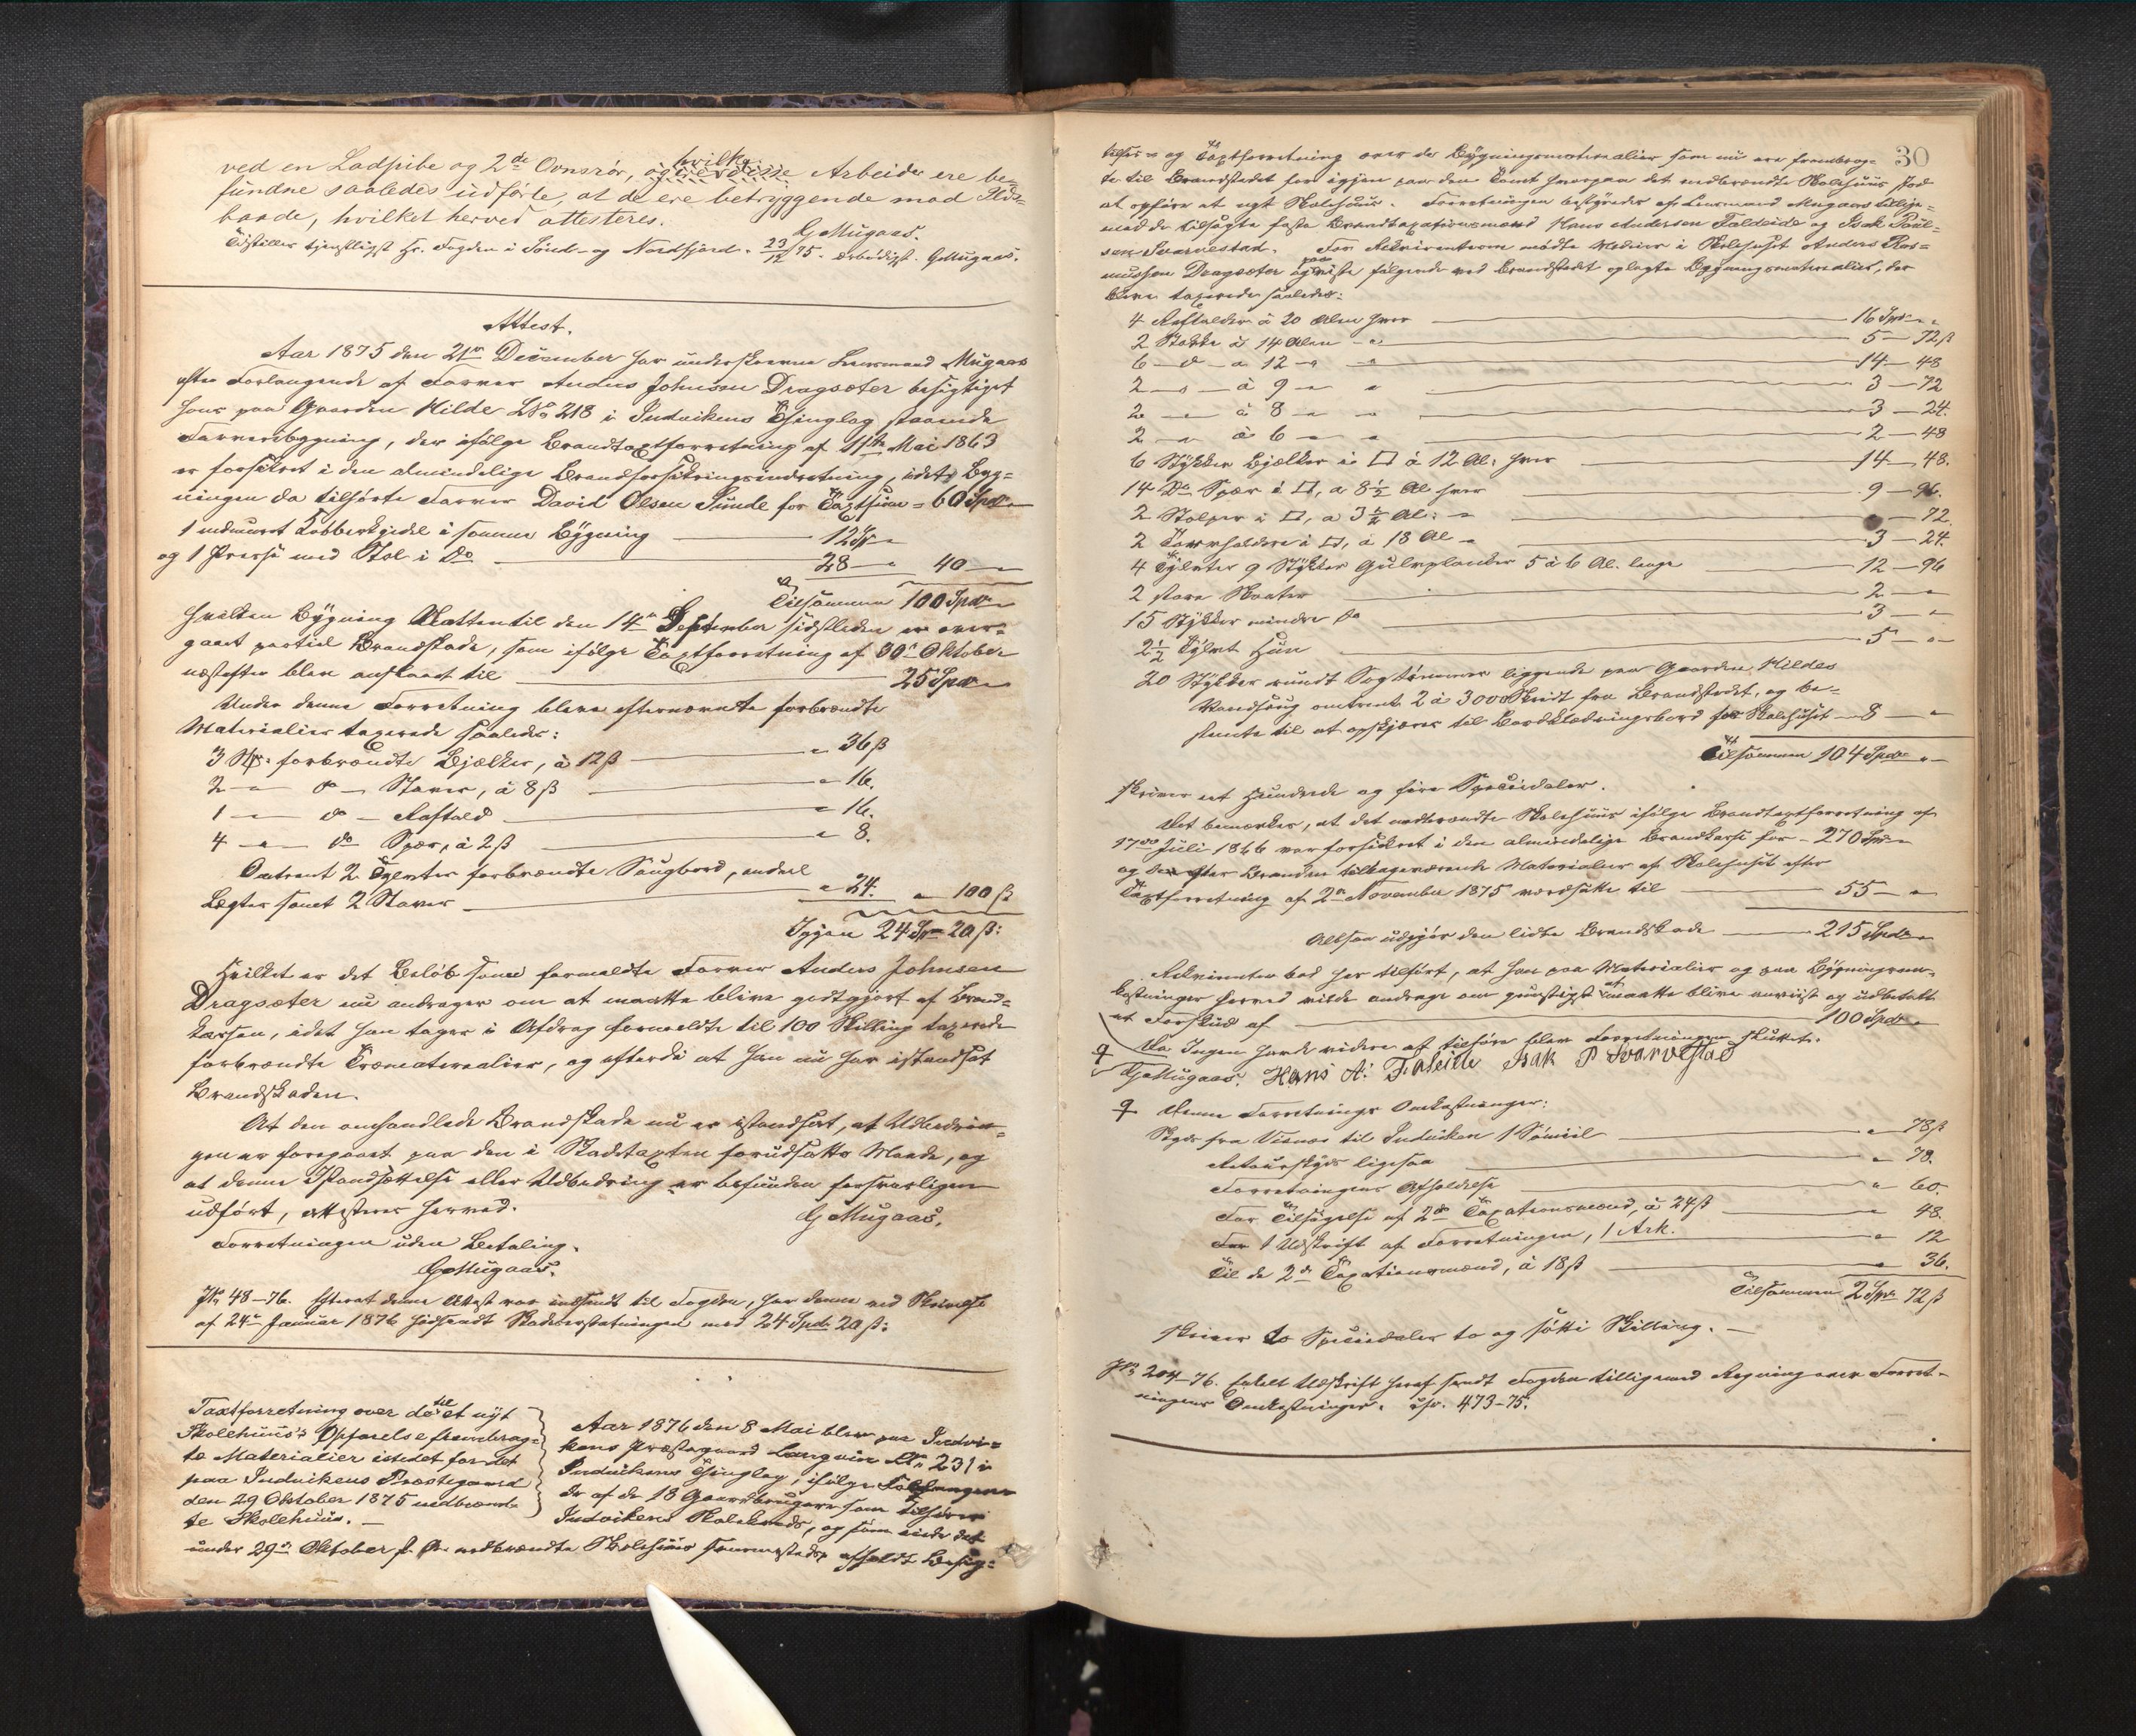 ved en Ladpibe og 2de Ovnsrör, hvilke Arbeider ere be-
fundne saaledes udförte, at de ere betryggende mod Ilds-
vaade, hvilket herved attesteres.
G Mugaas.
Tilstilles tjenstligst Hr. Fogden i Sönd- og Nordfjord. 23/12 75. ærbødigst. G Mugaas.
Attest.
Aar 1875 den 21de December har underskrevne Lensmand Mugaas
efter Forlangende af Farver Anders Johnsen Dragsæter besigtiget
hans paa Gaarden Hilde LNo 218 i Indvikens Thinglag staaende
Farveribygning, der ifølge Brandtaxtforretning af 11te Mai 1863
er forsikret i den almindelige Brandforsikringsindretning, idet Byg-
ningen da tilhörte Farver David Olsen Sunde for Taxtsum = 60 Spd
1 indmuret Kobberkjedel i samme Bygning 12 Sp
og 1 Presse med Stol i do 28 — 40 —
Tilsammen 100 Spd
hvilken Bygning Natten til den 14de September sidstleden er over-
gaaet partiel Brandskade, som ifølge Taxtforretning af 30te Oktober
næstefter blev anslaaet til 25 Spd
Under denne Forretning bleve efternævnte forbrændte
Materialier taxerede saaledes:
3 Stk. forbrændte Bjælker, à 12 ß " 36 ß
2 — do — Staver, à 8 ß " 16.
1 — do — Raftald " 16.
4 — do Spær, à 2 ß " 8.
Omtrent 2 Tylvter forbrændte Saugbord, endeel
Lægter samt 2 Staver " 24. " 100 ß
Igjen 24 Spd 20 ß:
Hvilket er det Beløb som formeldte Farver Anders Johnsen
Dragsæter nu andrager om at maatte blive godtgjort af Brand-
kassen, idet han tager i Afdrag formeldte til 100 Skilling taxerede
forbrændte Træmaterialier, og efterdi at han nu har istandsat
Brandskaden.
At den omhandlede Brandskade nu er istandsat, at Udbedrin-
gen er foregaaet paa den i Skadetaxten forudsatte Maade, og
at denne Istandsættelse eller Udbedring er befunden forsvarligen
udfört, attesteres herved.
G Mugaas,
Forretningen uden Betaling.
G Mugaas.
JNo 48-76. Efterat denne Attest var indsendt til Fogden, har denne ved Skrivelse
af 24de Januar 1876 hidsendt Skadeerstatningen med 24 Spd. 20 ß:
Taxtforretning over de til et nyt
Skolehuus's Opførelse frembrag-
te Materialier istedet for det
paa Indvikens Præstegaard
den 29 Oktober 1875 nedbrænd-
te Skolehuus. —
Aar 1876 den 8 Mai blev paa Indvi-
kens Præstegaard LNo 231 i
Indvikens Thinglag, ifølge
de af de 18 Gaardbrugere som tilhörer
Indvikens Skolekreds, og som eiede det
under 29de Oktober f. A. nedbrændte Skolehuus sammesteds, afholdt Besig-
30
telses- og Taxtforretning over de Bygningsmaterialier som nu ere frembrag-
te til Brandstedet for igjen paa den Tomt hvorpaa det nedbrændte Skolehuus stod
at opføre et nyt Skolehuus. Forretningen bestyredes af Lensmand Mugaas tillige-
med de tilsagte faste Brandtaxationsmænd Hans Andersen Faleide og Isak Poul-
sen Svarvestad. For Rekvirenterne mødte Medeier i Skolehuset Anders Ras-
mussen Dragsæter og paaviste følgende ved Brandstedet oplagte Bygningsmaterialier, der
bleve taxerede saaledes:
4 Raftalder à 20 Alen hver 16 Spd "
2 Stokke à 14 Alen " 5 — 72 ß
6 — do — a 12 — " 14 — 48
2 — " — à 9 — " 3 — 72
2 — " à 8 — " 3 — 24.
2 — " à 6 — " 2 — 48
6 Stykker Bjælker i □ à 12 Al: hver 14 — 48.
14 Do Spær i □, a 8½ Al hver 9 — 96.
2 Stolper i □, a 3½ Al: " — 72.
2 i □, à 18 Al " 3 — 24.
4 Tylvter 9 Stykker Gulvplanker 5 à 6 Al. lange 12 — 96
2 store 2 — "
15 Stykker mindre do 3 — "
2½ Tylvt Hun 5 — "
20 Stykker rundt Sagtømmer liggende paa Gaarden Hildes
Vandsaug omtrent 2 à 3000 Skridt fra Brandstedet, og be-
stemte til at opskjæres til Bordklædningsbord for Skolehuset — 8 — "
Tilsammen 104 Spd "
skriver eet Hundrede og fire Speciedaler.
Det bemærkes, at det nedbrændte Skolehuus ifølge Brandtaxtforretning af
17de Juli 1866 var forsikret i den almindelige Brandkasse for — 270 Spd
og de efter Branden tilbageværende Materialier af Skolehuset efter
Taxtforretning af 2den November 1875 værdsatte til 55 — "
Altsaa udgjör den lidte Brandskade 215 Spd
Rekvirenten bad her tilfört, at han paa Materialier og paa Bygningsom-
kostninger herved vilde andrage om gunstigst at maatte blive anviist og udbetalt
et Forskud af 100 Spd "
Da Ingen havde videre at tilføre blev Forretningen sluttet.
G Mugaas. Hans A: Faleide Isak P Svarvestad
Denne Forretnings Omkostninger:
Skyds fra Visnæs til Indviken 1 Sömiil " 78 ß
Retourskyds ligesaa " 78.
Forretningens Afholdelse " 60.
For Tilsigelse af 2de Taxationsmænd, à 24 ß " 48.
For 1 Udskrift af Forretningen, 1 Ark. " 12
Til de 2de Taxationsmænd, à 18 ß " 36.
Tilsammen 2 Spd 72 ß
skriver to Speciedaler to og sötti Skilling. —
JNo 204-76. Udskrift heraf sendt Fogden tilligemed Regning over Forret-
ningens Omkostninger. cfr. 473-75.